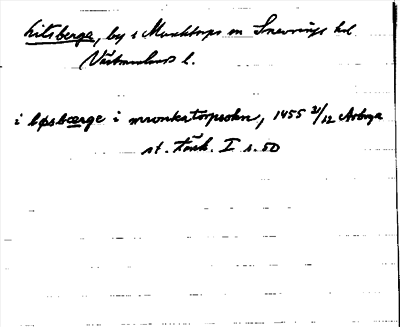 Litsberga, by i Munktorps sn Snevringe hd.
Västmanlands l.
i løsbærge i mwnkatorpsokn, 1455 21/12 Arboga
st. tänk. I s. 50